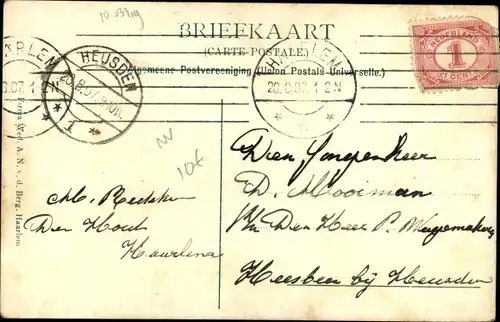 10.03419
BRIEFKAART
(CARTE POSTALE.)
Algemeene Postvereeniging (Union Postale Universelle.)
NEDERLAND
1
CENT
HAARLEM
20.8.07. 1-2N
HEUSDEN
20.8.07.
1
HAARLEM
20.8.07. 1-2N
Firma Wed. A. N. v. d. Berg, Haarlem
10€
Den Jongenheer
D. Mooiman
p/a Den Heer P. Wagemakers
Heesbeen bij Heusden
M. Bekker
Den Hout
Haarlem